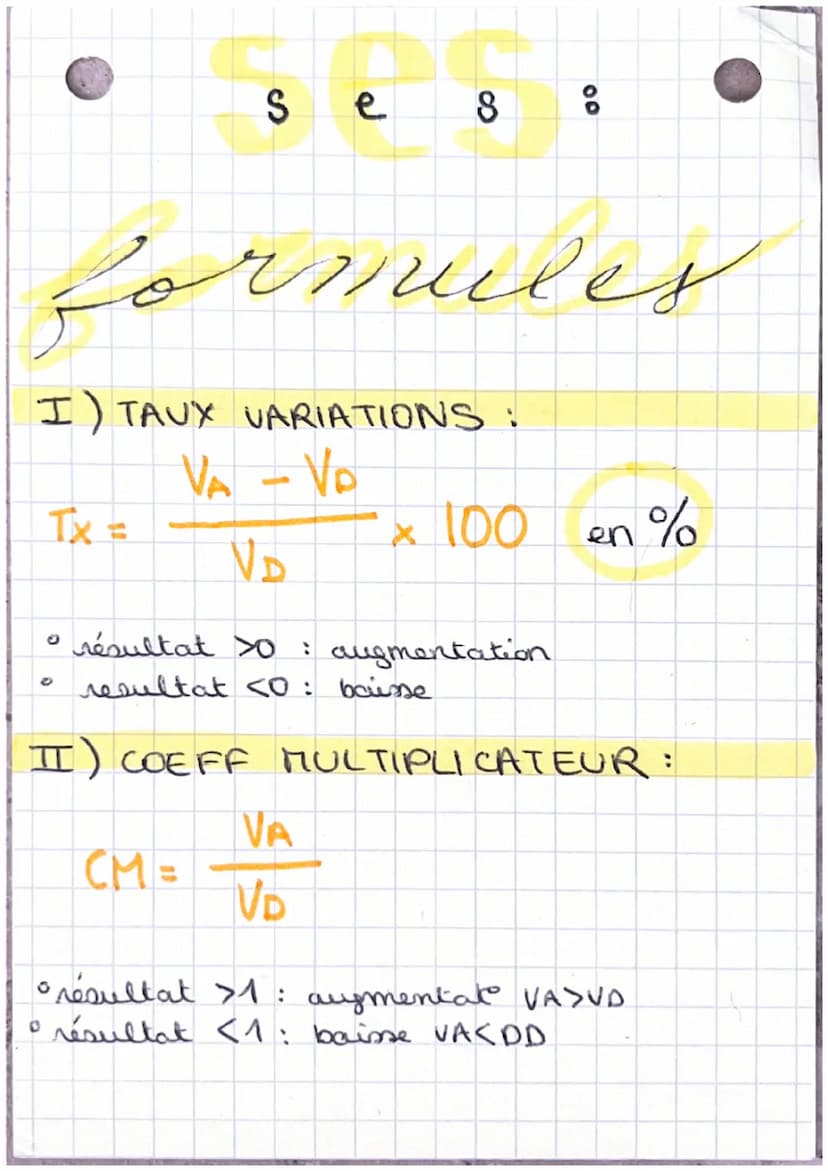 ses
s e s :
formules
I) TAUX VARIATIONS :
Tx = (VA - VD) / VD x 100 en %
° résultat >0 : augmentation
° resultat <0 : baisse
II) COEFF MULTIPLICATEUR :
CM = VA / VD
° résultat >1 : augmentat° VA>VD
° résultat <1 : baisse VA<DD